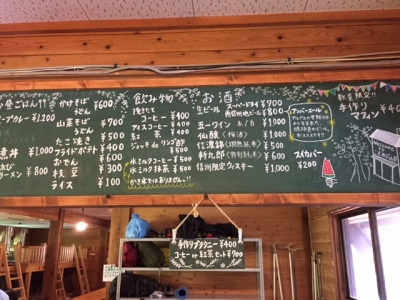 お昼ごはん!!
ビーフカレー ¥1,200
煮丼 ¥1,000
ラーメン ¥800
かけそば
うどん ¥600
山菜そば
うどん ¥700
たこ焼き ¥500
フライドポテト ¥400
おでん ¥300
枝豆 ¥300
ライス ¥100
飲み物
挽きたて
コーヒー ¥400
アイスコーヒー ¥400
紅茶 ¥400
ジョッキ de リンゴ酢
氷ミルクコーヒー ¥500
氷ミルク抹茶 ¥500
かき氷ではありません!!
お酒
生ビール スーパードライ ¥700
¥800
五一ワイン 赤/白 ¥1,000
仙醸(梅酒) ¥1,000
信濃錦 ¥1,000
¥1,000
信州ウィスキー ¥1,000
アッパーエール
スイカバー
¥200
数量限定!!
手作り
マフィン ¥400
手作りブラウニー ¥400
コーヒー or 紅茶セット ¥700